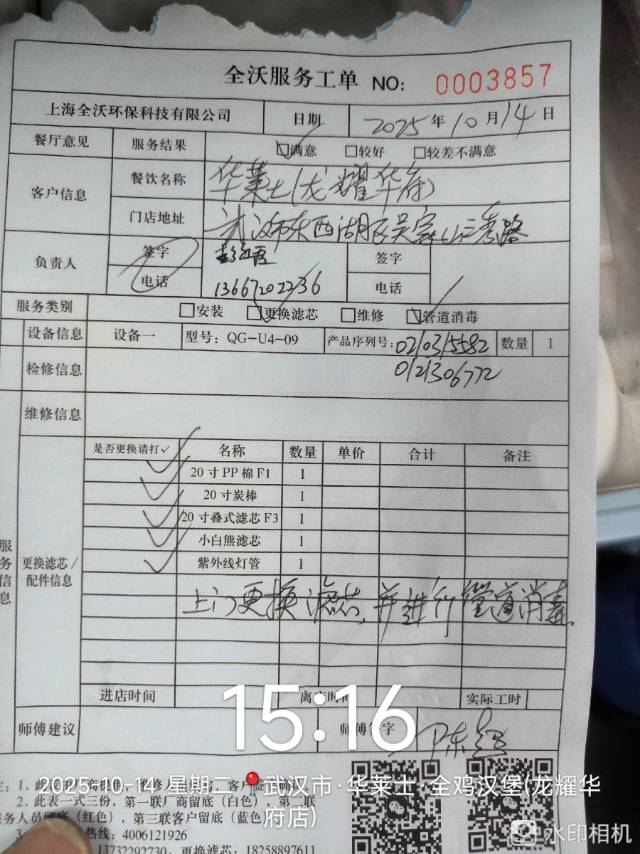 全沃服务工单 NO: 0003857
上海全沃环保科技有限公司 日期 2025 年 10 月 14 日
餐厅意见 服务结果 ☑满意 □较好 □较差不满意
客户信息 餐饮名称 华莱士(龙耀华府)
门店地址 武汉市东西湖区吴家山三秀路
负责人 签字 签字
电话 13667202236 电话
服务类别 □安装 ☑更换滤芯 □维修 ☑管道消毒
设备信息 设备一 型号: QG-U4-09 产品序列号: 02/03/5582 数量 1
检修信息 0121306772
维修信息
是否更换请打✓ 名称 数量 单价 合计 备注
✓ 20 寸 PP 棉 F1 1
✓ 20 寸炭棒 1
✓ 20 寸叠式滤芯 F3 1
✓ 小白熊滤芯 1
✓ 紫外线灯管 1
服务信息
更换滤芯/配件信息
上门更换滤芯,并进行管道消毒
进店时间 离店时间 实际工时
15:16
师傅建议 师傅签字
2025-10-14 星期二 武汉市·华莱士·全鸡汉堡(龙耀华府店)
2: 此表一式三份,第一联厂商留底(白色),第二联
(红色),第三联客户留底(蓝色)
热线: 4006121926
13732292730 18258897611
水印相机